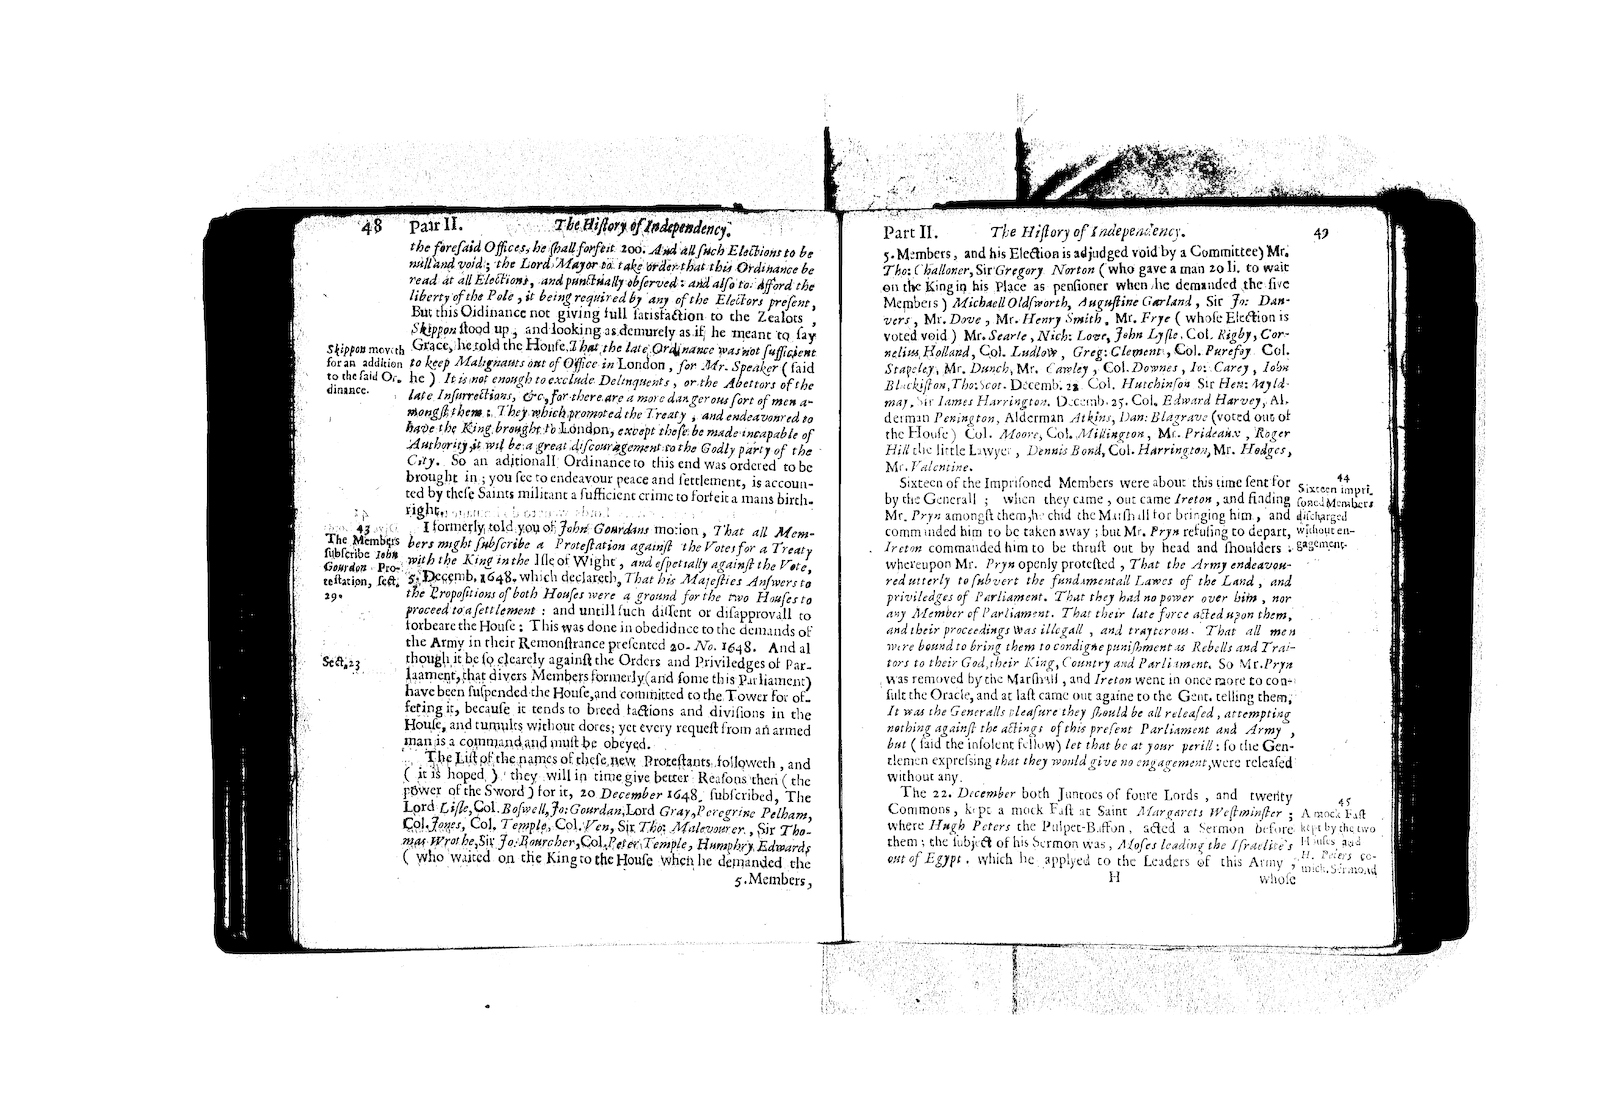 48 Part II. The Hiſtory of Independency.
the foreſaid Offices, he ſhall forfeit 200. And all ſuch Elections to be
null and void; the Lord Mayor to take order that this Ordinance be
read at all Elections, and punctually obſerved: and alſo to afford the
liberty of the Pole, it being required by any of the Electors preſent,
But this Oidinance not giving full ſatisfaction to the Zealots,
Skippon ſtood up, and looking as demurely as if he meant to ſay
Grace, he told the Houſe, That the late Ordinance was not ſufficient
to keep Malignants out of Office in London, for Mr. Speaker (ſaid
he) It is not enough to exclude Delinquents, or the Abettors of the
late Inſurrections, &c, for there are a more dangerous ſort of men a-
mongſt them: They which promoted the Treaty, and endeavoured to
have the King brought to London, except theſe be made incapable of
Authority, it wil be a great diſcouragement to the Godly party of the
City. So an aditionall Ordinance to this end was ordered to be
brought in; you ſee to endeavour peace and ſettlement, is accoun-
ted by theſe Saints militant a ſufficient crime to forfeit a mans birth-
right.
Skippon moveth
for an addition
to the ſaid Or-
dinance.
I formerly told you of John Gourdans motion, That all Mem-
bers might ſubſcribe a Proteſtation againſt the Votes for a Treaty
with the King in the Iſle of Wight, and eſpetially againſt the Vote,
5. Decemb. 1648. which declareth, That his Majeſties Anſwers to
the Propoſitions of both Houſes were a ground for the two Houſes to
proceed to a ſettlement: and untill ſuch diſſent or diſapprovall to
forbeare the Houſe: This was done in obedidnce to the demands of
the Army in their Remonſtrance preſented 20. No. 1648. And al
though it be ſo clearely againſt the Orders and Priviledges of Par-
liament, that divers Members formerly (and ſome this Parliament)
have been ſuſpended the Houſe, and committed to the Tower for of-
fering it, becauſe it tends to breed factions and diviſions in the
Houſe, and tumults without dores; yet every requeſt from an armed
man is a command and muſt be obeyed.
43
The Members
ſubſcribe John
Gourdon Pro-
teſtation, ſect.
29.
Sect. 23
The Liſt of the names of theſe new Proteſtants followeth, and
(it is hoped) they will in time give better Reaſons then (the
power of the Sword) for it, 20 December 1648. ſubſcribed, The
Lord Liſle, Col. Boſwell, Jo: Gourdan, Lord Gray, Peregrine Pelham,
Col. Jones, Col. Temple, Col. Ven, Sir Tho: Malevourer, Sir Tho-
mas Wrothe, Sir Jo: Bourcher, Col. Peter Temple, Humphry Edwards
(who waited on the King to the Houſe when he demanded the
5. Members,
Part II. The Hiſtory of Independency. 49
5. Members, and his Election is adjudged void by a Committee) Mr.
Tho: Challoner, Sir Gregory Norton (who gave a man 20 li. to wait
on the King in his Place as penſioner when he demanded the five
Members) Michaell Oldſworth, Auguſtine Garland, Sir Jo: Dan-
vers, Mr. Dove, Mr. Henry Smith, Mr. Frye (whoſe Election is
voted void) Mr. Searle, Nich: Love, John Lyſle, Col. Rigby, Cor-
nelius Holland, Col. Ludlow, Greg: Clement, Col. Purefoy Col.
Stapeley, Mr. Dunch, Mr. Cawley, Col. Downes, Io: Carey, Iohn
Blackiſton, Tho: Scot. Decemb. 22 Col. Hutchinſon Sir Hen: Myld-
may, Sir Iames Harrington. Decemb. 25. Col. Edward Harvey, Al-
derman Penington, Alderman Atkins, Dan: Blagrave (voted out of
the Houſe) Col. Moore, Col. Millington, Mr. Prideaux, Roger
Hill the little Lawyer, Dennis Bond, Col. Harrington, Mr. Hodges,
Mr. Valentine.
Sixteen of the Impriſoned Members were about this time ſent for
by the Generall; when they came, out came Ireton, and finding
Mr. Pryn amongſt them, he chid the Marſhall for bringing him, and
commanded him to be taken away; but Mr. Pryn refuſing to depart,
Ireton commanded him to be thruſt out by head and ſhoulders:
whereupon Mr. Pryn openly proteſted, That the Army endeavou-
red utterly to ſubvert the fundamentall Lawes of the Land, and
priviledges of Parliament. That they had no power over him, nor
any Member of Parliament. That their late force acted upon them,
and their proceedings was illegall, and trayterous. That all men
were bound to bring them to condigne puniſhment as Rebells and Trai-
tors to their God, their King, Country and Parliament. So Mr. Pryn
was removed by the Marſhall, and Ireton went in once more to con-
ſult the Oracle, and at laſt came out againe to the Gent. telling them,
It was the Generalls pleaſure they ſhould be all releaſed, attempting
nothing againſt the actings of this preſent Parliament and Army,
but (ſaid the inſolent fellow) let that be at your perill: ſo the Gen-
tlemen expreſſing that they would give no engagement, were releaſed
without any.
44
Sixteen impri-
ſoned Members
diſcharged
without en-
gagement.
The 22. December both Juncoes of foure Lords, and twenty
Commons, kept a mock Faſt at Saint Margarets Weſtminſter;
where Hugh Peters the Pulpet-Buffon, acted a Sermon before
them; the ſubject of his Sermon was, Moſes leading the Iſraelites
out of Egypt, which he applyed to the Leaders of this Army,
45
A mock Faſt
kept by the two
Houſes, and
H. Peters co-
mick. Sermon.
H whoſe